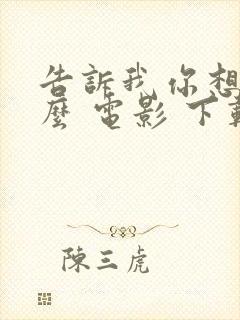 告訴我 你想
麼 電影 下載
陳三虎